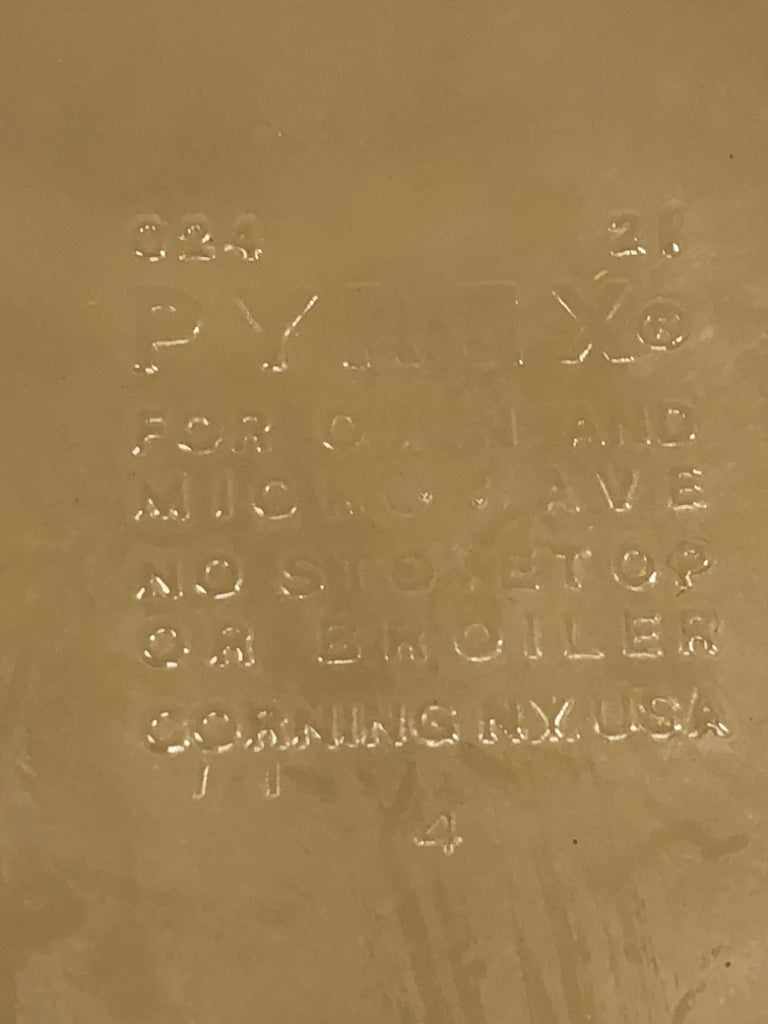 024 21
PYREX®
FOR OVEN AND
MICROWAVE
NO STOVETOP
OR BROILER
CORNING NY. USA
11
4